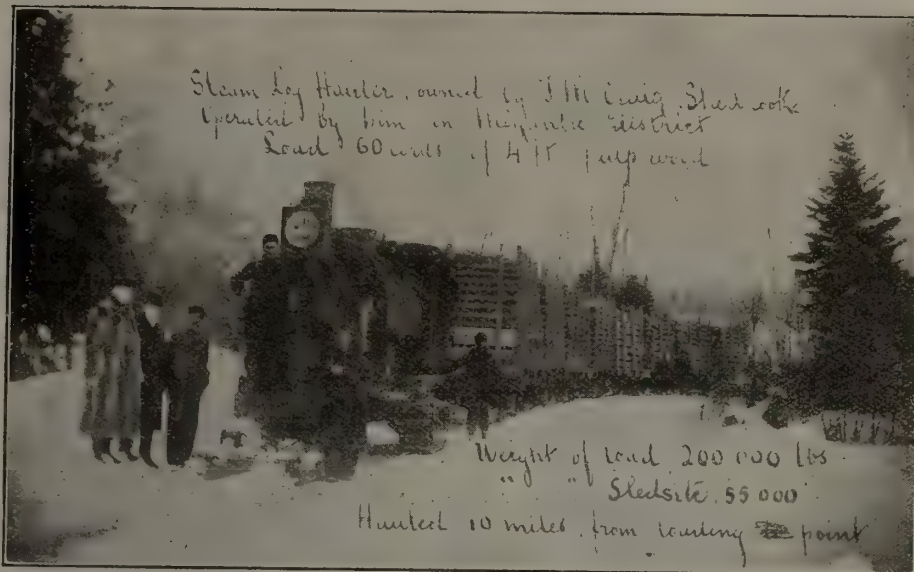 Steam Log Hauler, owned by J M Craig, Sherbrooke
Operated by him in Megantic district
Load 60 cords of 4 ft pulp wood
Weight of load 200 000 lbs
" " Sleds 55 000
Hauled 10 miles from loading point